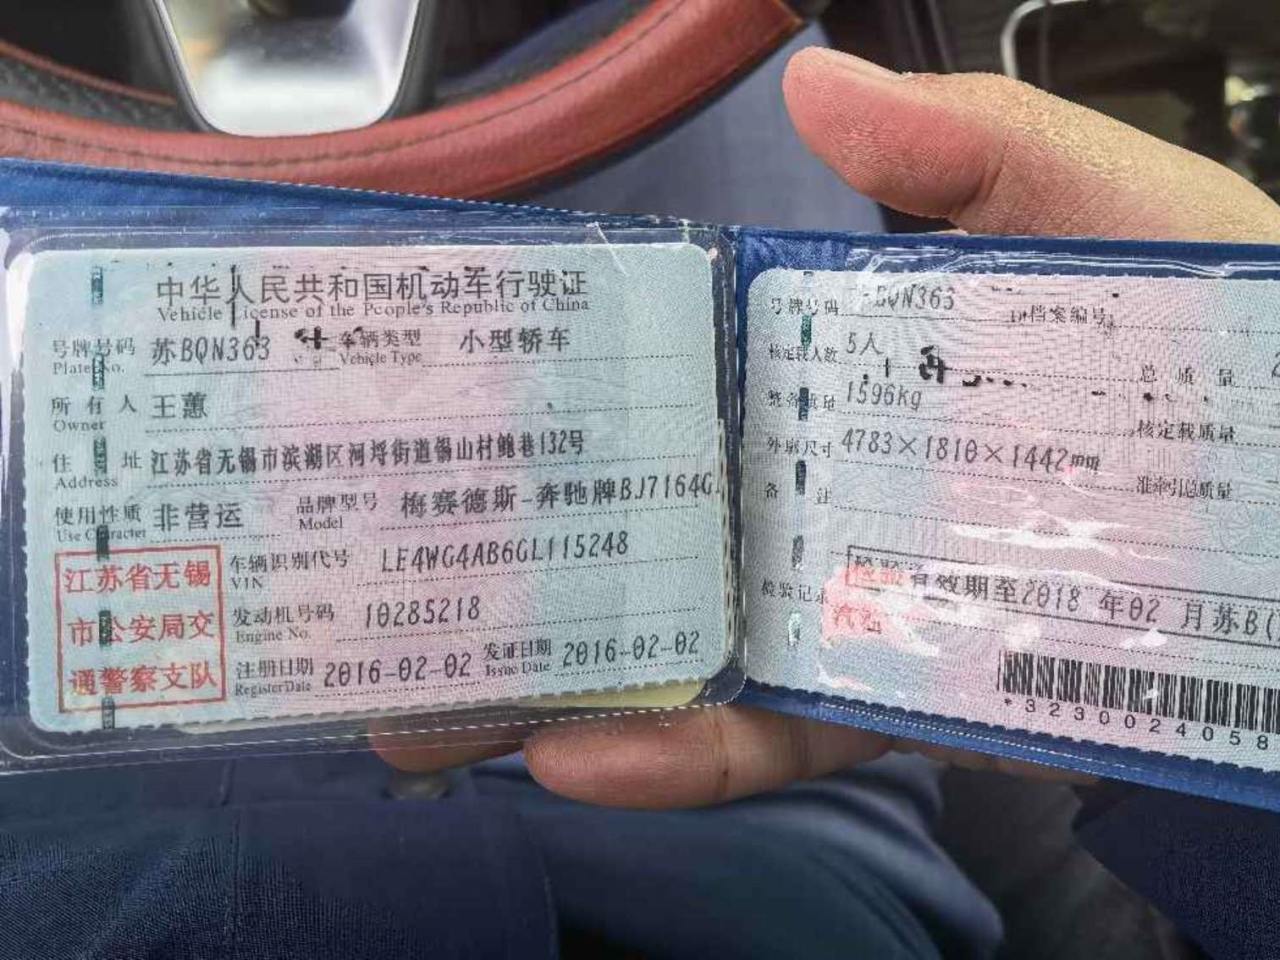 中华人民共和国机动车行驶证
Vehicle License of the People's Republic of China
号牌号码 苏BQN363 车辆类型 小型轿车
Plate No. Vehicle Type
所有人 王蕙
Owner
住址 江苏省无锡市滨湖区河埒街道锡山村鲍巷132号
Address
使用性质 非营运 品牌型号 梅赛德斯-奔驰牌BJ7164G
Use Character Model
江苏省无锡
市公安局交
通警察支队
车辆识别代号 LE4WG4AB6GL115248
VIN
发动机号码 10285218
Engine No.
注册日期 2016-02-02 发证日期 2016-02-02
Register Date Issue Date
号牌号码 BQN363 档案编号
核定载人数 5人 总质量
整备质量 1596kg 核定载质量
外廓尺寸 4783×1810×1442mm 准牵引总质量
备注
检验记录 检验有效期至2018年02月苏B(
*3230024058